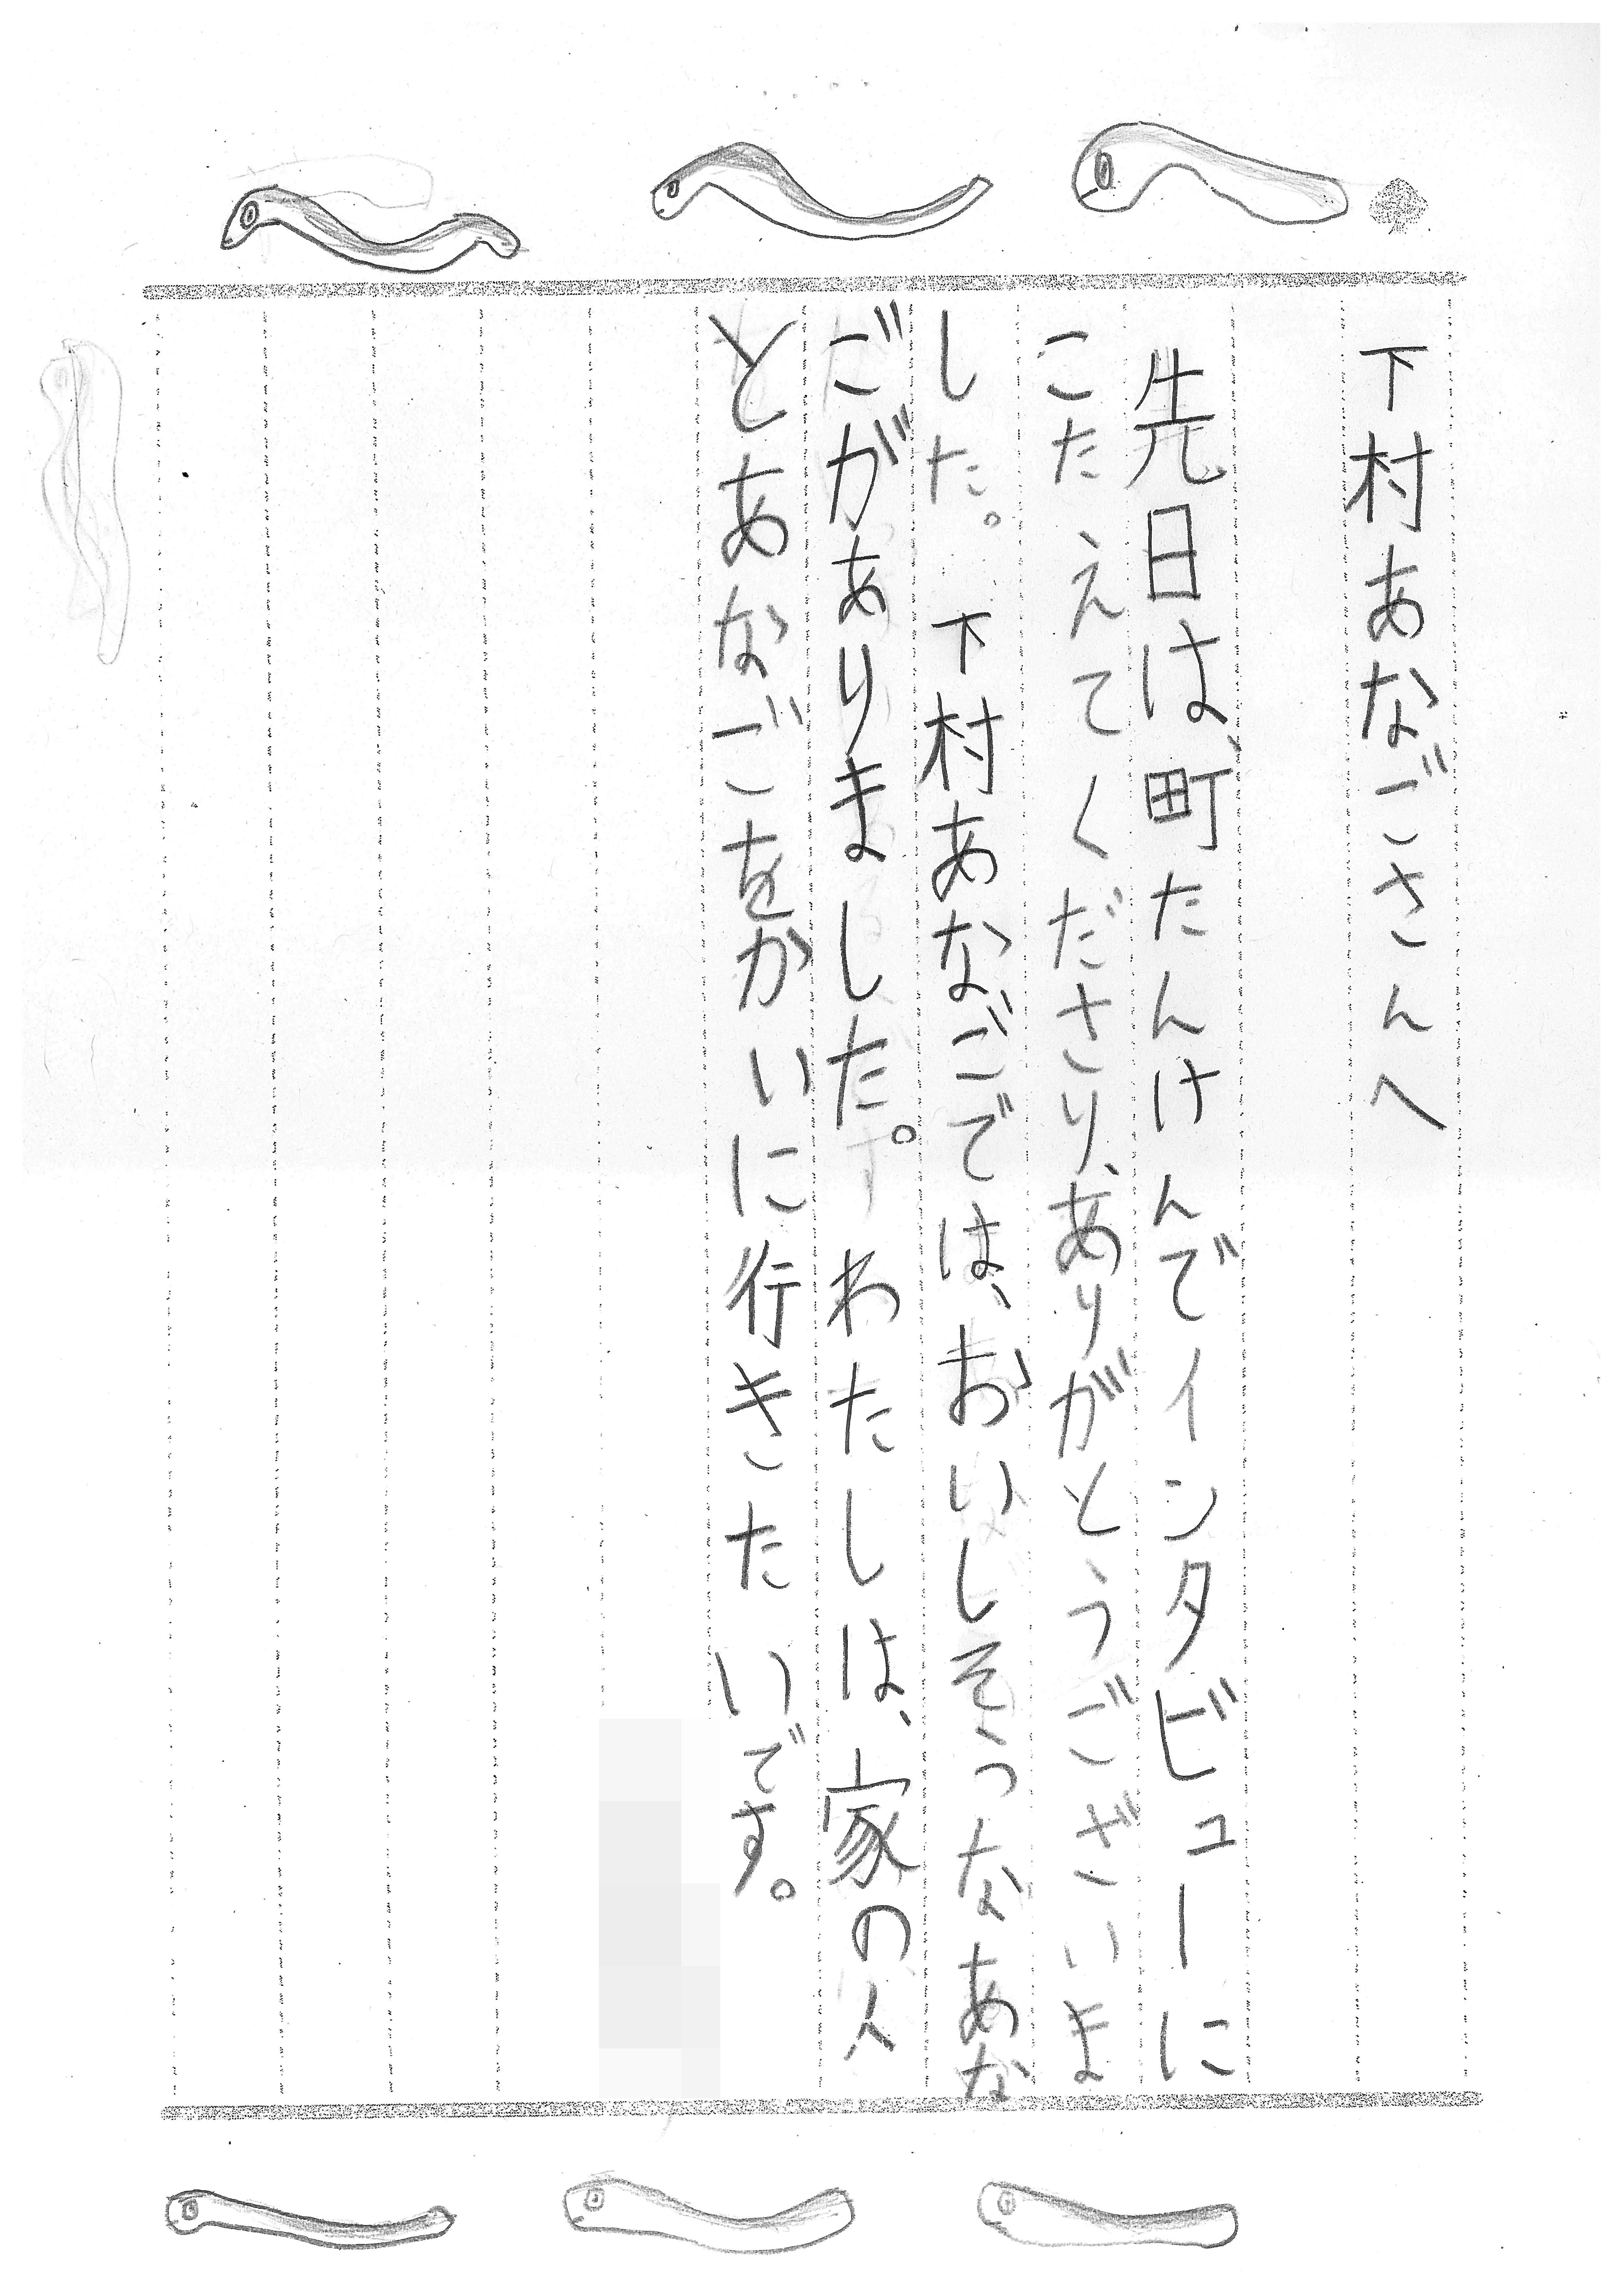 下村あなごさんへ
先日は、町たんけんでインタビューに
こたえてくださり、ありがとうございま
した。下村あなごでは、おいしそうなあな
ごがありました。わたしは、家の人
とあなごをかいに行きたいです。